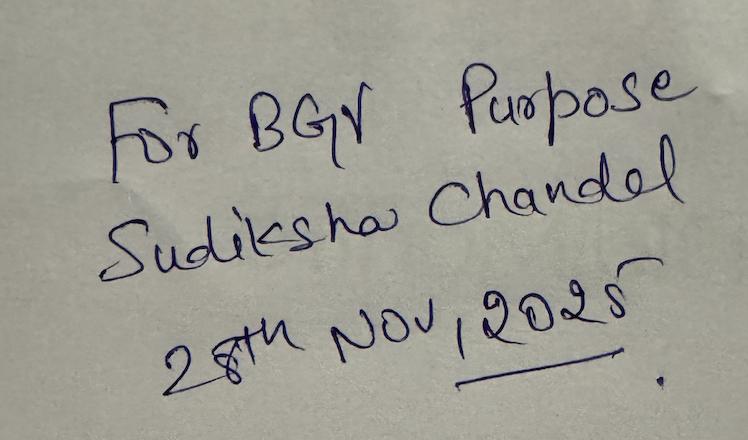 For BGV Purpose
Sudiksha Chandel
28th NOV, 2025.